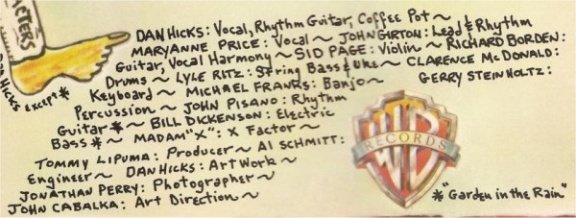 ACTERS
DAN HICKS EXCEPT*
DAN HICKS: Vocal, Rhythm Guitar, Coffee Pot~
MARYANNE PRICE: Vocal~ JOHN GIRTON: Lead & Rhythm
Guitar, Vocal Harmony~ SID PAGE: Violin~ RICHARD BORDEN:
Drums~ LYLE RITZ: String Bass & Uke~ CLARENCE McDONALD:
Keyboard~ MICHAEL FRANKS: Banjo~ GERRY STEINHOLTZ:
Percussion~ JOHN PISANO: Rhythm
Guitar*~ BILL DICKENSON: Electric
Bass*~ MADAM "X": X Factor~
TOMMY LIPUMA: Producer~ Al SCHMITT:
Engineer~ DAN HICKS: Art Work~
JONATHAN PERRY: Photographer~
JOHN CABALKA: Art Direction~
WB
RECORDS
*"Garden in the Rain"